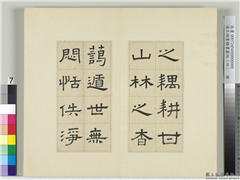 之耦耕甘
山林之杳
藹遁世無
悶恬佚淨
7